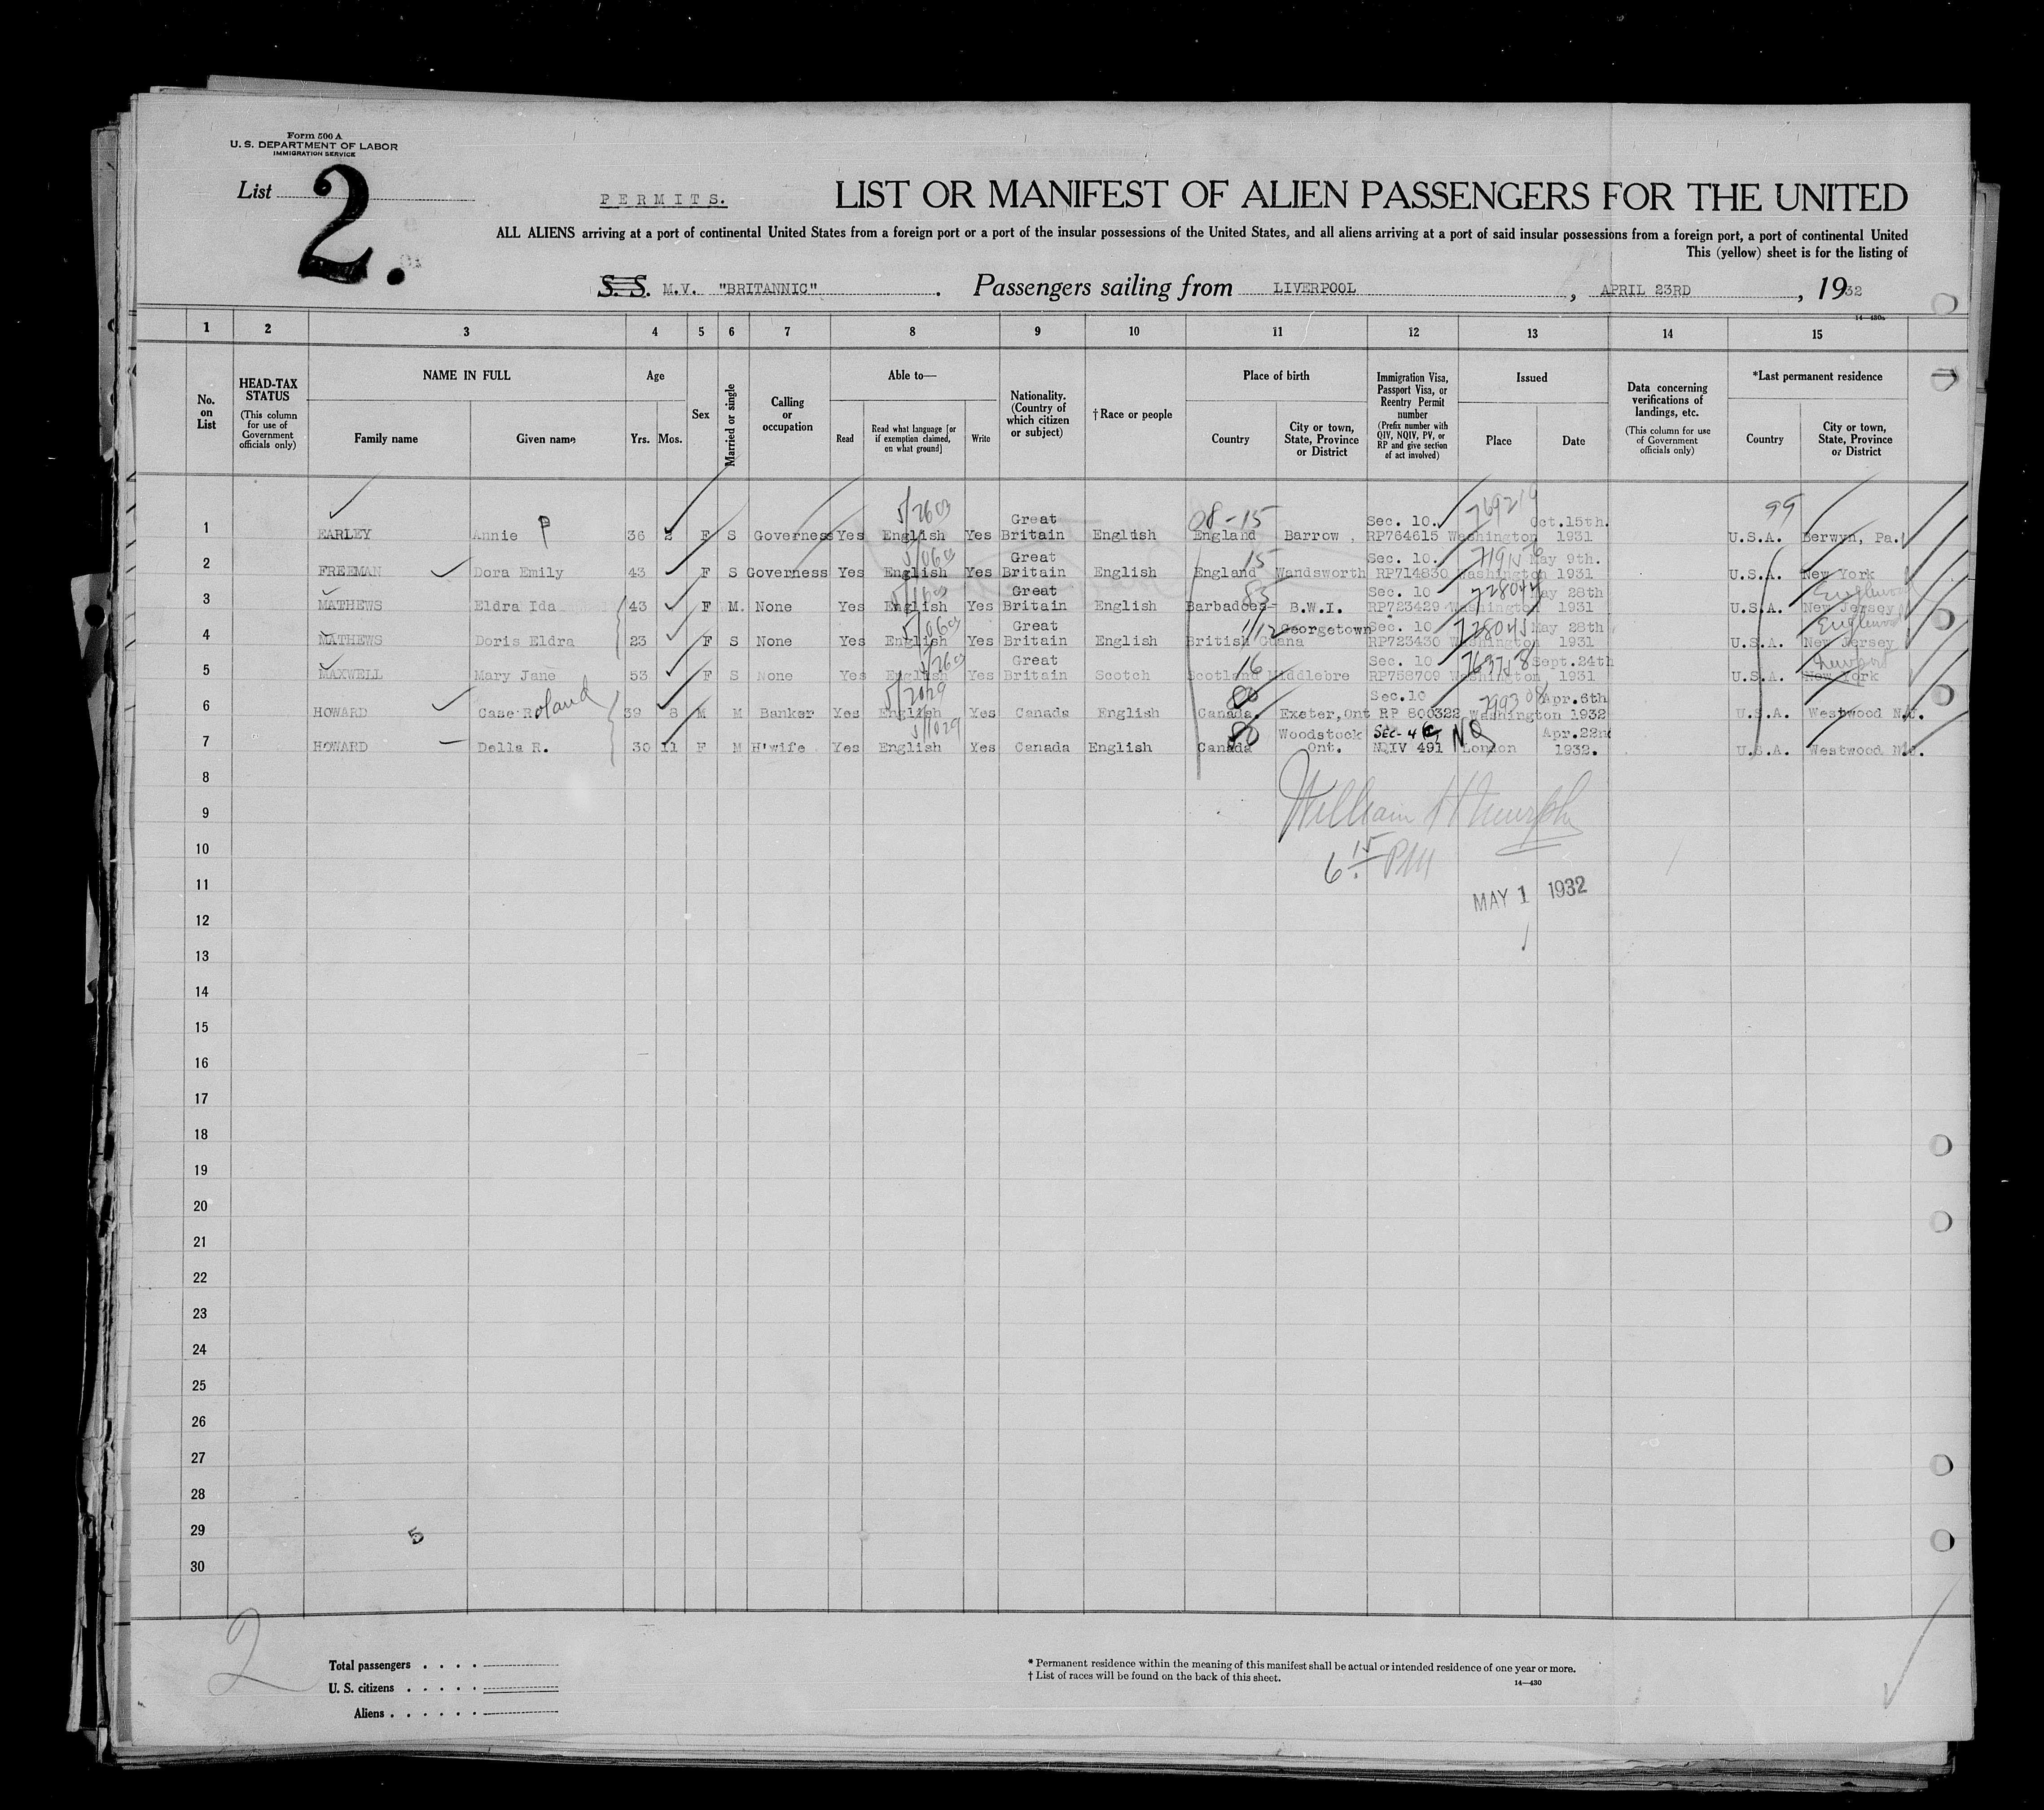 Form 500 A
U. S. DEPARTMENT OF LABOR
IMMIGRATION SERVICE
List 2.
PERMITS.
LIST OR MANIFEST OF ALIEN PASSENGERS FOR THE UNITED
ALL ALIENS arriving at a port of continental United States from a foreign port or a port of the insular possessions of the United States, and all aliens arriving at a port of said insular possessions from a foreign port, a port of continental United
This (yellow) sheet is for the listing of
S. S. M.V. "BRITANNIC" . Passengers sailing from LIVERPOOL , APRIL 23RD , 1932
14—430a
1 2 3 4 5 6 7 8 9 10 11 12 13 14 15
No. on List
HEAD-TAX STATUS (This column for use of Government officials only)
NAME IN FULL
Family name Given name
Age
Yrs. Mos.
Sex
Married or single
Calling or occupation
Able to—
Read Read what language [or if exemption claimed, on what ground] Write
Nationality. (Country of which citizen or subject)
†Race or people
Place of birth
Country City or town, State, Province or District
Immigration Visa, Passport Visa, or Reentry Permit number (Prefix number with QIV, NQIV, PV, or RP and give section of act involved)
Issued
Place Date
Data concerning verifications of landings, etc. (This column for use of Government officials only)
*Last permanent residence
Country City or town, State, Province or District
1 EARLEY Annie P 36 2 F S Governess Yes English Yes Great Britain English 08-15 England Barrow, Sec. 10. RP764615 Washington Oct.15th. 1931 99 U.S.A. Berwyn, Pa.
2 FREEMAN Dora Emily 43 F S Governess Yes English Yes Great Britain English 15 England Wandsworth Sec. 10. RP714830 Washington May 9th. 1931 U.S.A. New York
3 MATHEWS Eldra Ida 43 F M. None Yes English Yes Great Britain English 83 Barbadoes- B.W.I. Sec. 10 RP723429 728044 Washington May 28th 1931 U.S.A. Englewood New Jersey
4 MATHEWS Doris Eldra 23 F S None Yes English Yes Great Britain English 1/12 British Guana Georgetown Sec. 10 RP723430 728045 Washington May 28th 1931 U.S.A. Englewood New Jersey
5 MAXWELL Mary Jane 53 F S None Yes English Yes Great Britain Scotch 16 Scotland Middlebre Sec. 10 RP758709 Washington Sept.24th 1931 U.S.A. New York
6 HOWARD Case Roland 39 8 M M Banker Yes English Yes Canada English Canada. Exeter,Ont Sec.10 RP 800322 Washington Apr.6th 1932 U.S.A. Westwood N.J.
7 HOWARD Della R. 30 11 F M H'wife Yes English Yes Canada English Canada Woodstock Ont. SEC-4 NQIV 491 NQ London Apr.22n 1932. U.S.A. Westwood N.J.
8
9
William H Murphy
10
6 15 PM
11
MAY 1 1932
12
13
14
15
16
17
18
19
20
21
22
23
24
25
26
27
28
29
5
30
2
Total passengers . . . .
U. S. citizens . . . . .
Aliens . . . . . .
* Permanent residence within the meaning of this manifest shall be actual or intended residence of one year or more.
† List of races will be found on the back of this sheet.
14—430